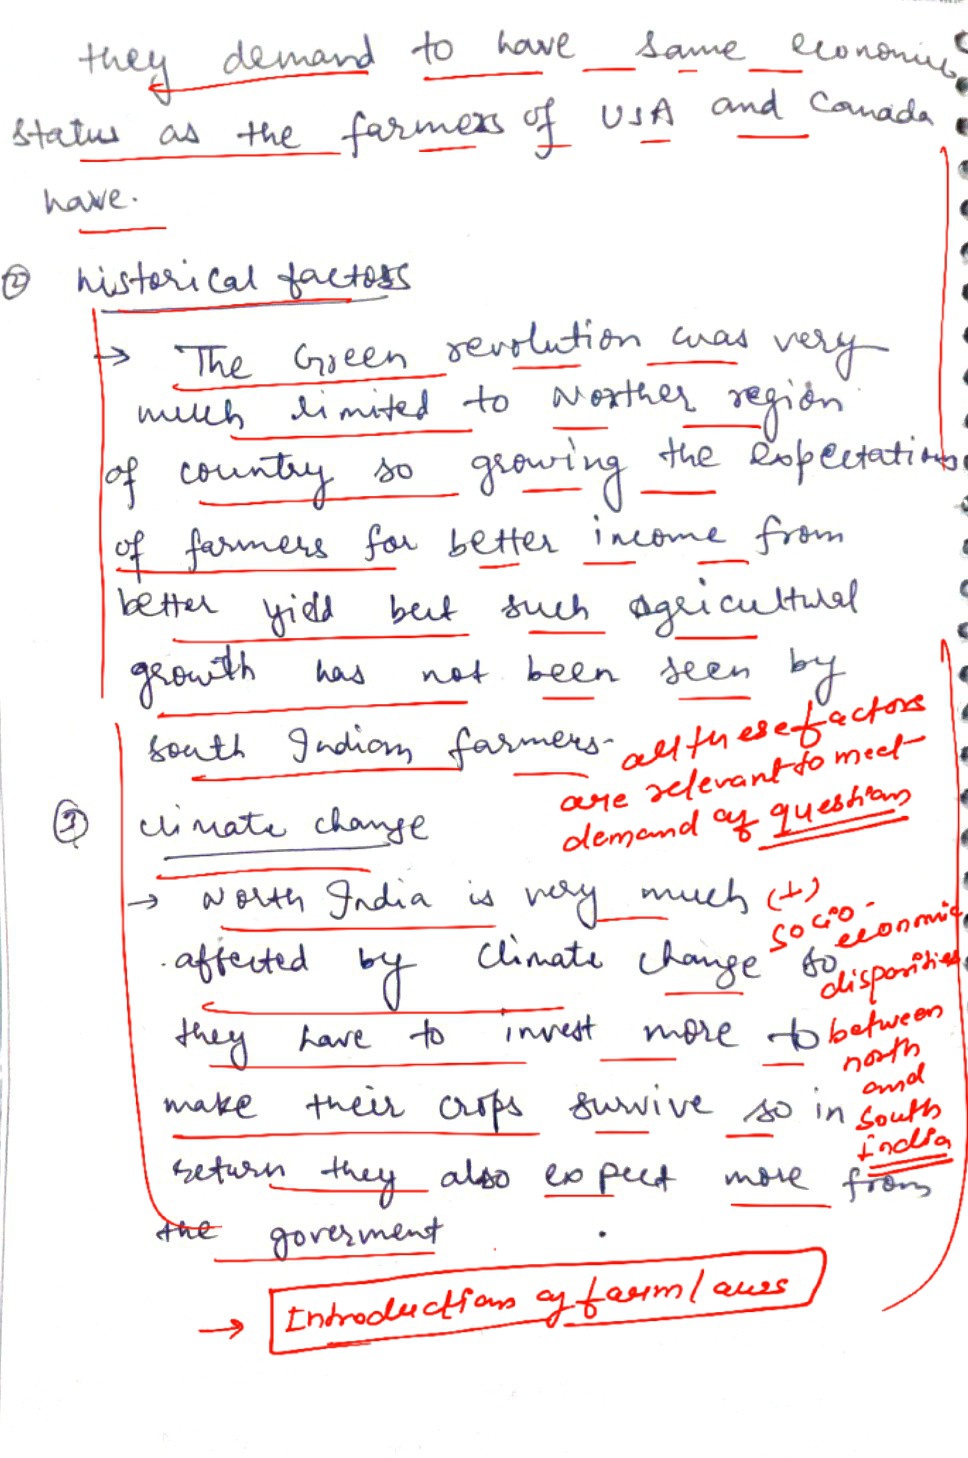 they demand to have same economic
status as the farmers of USA and Canada
have.
② historical factors
→ The Green revolution was very
much limited to Norther region
of country so growing the expectations
of farmers for better income from
better yield but such agricultural
growth has not been seen by
south Indian farmers.
all these factors
are relevant to meet
demand of question
③ climate change
→ North India is very much
affected by climate change so
they have to invest more to
make their crops survive so in
return they also expect more from
the goverment.
(+)
socio-
economic
disparities
between
north
and
south
India
→ Introduction of farm laws